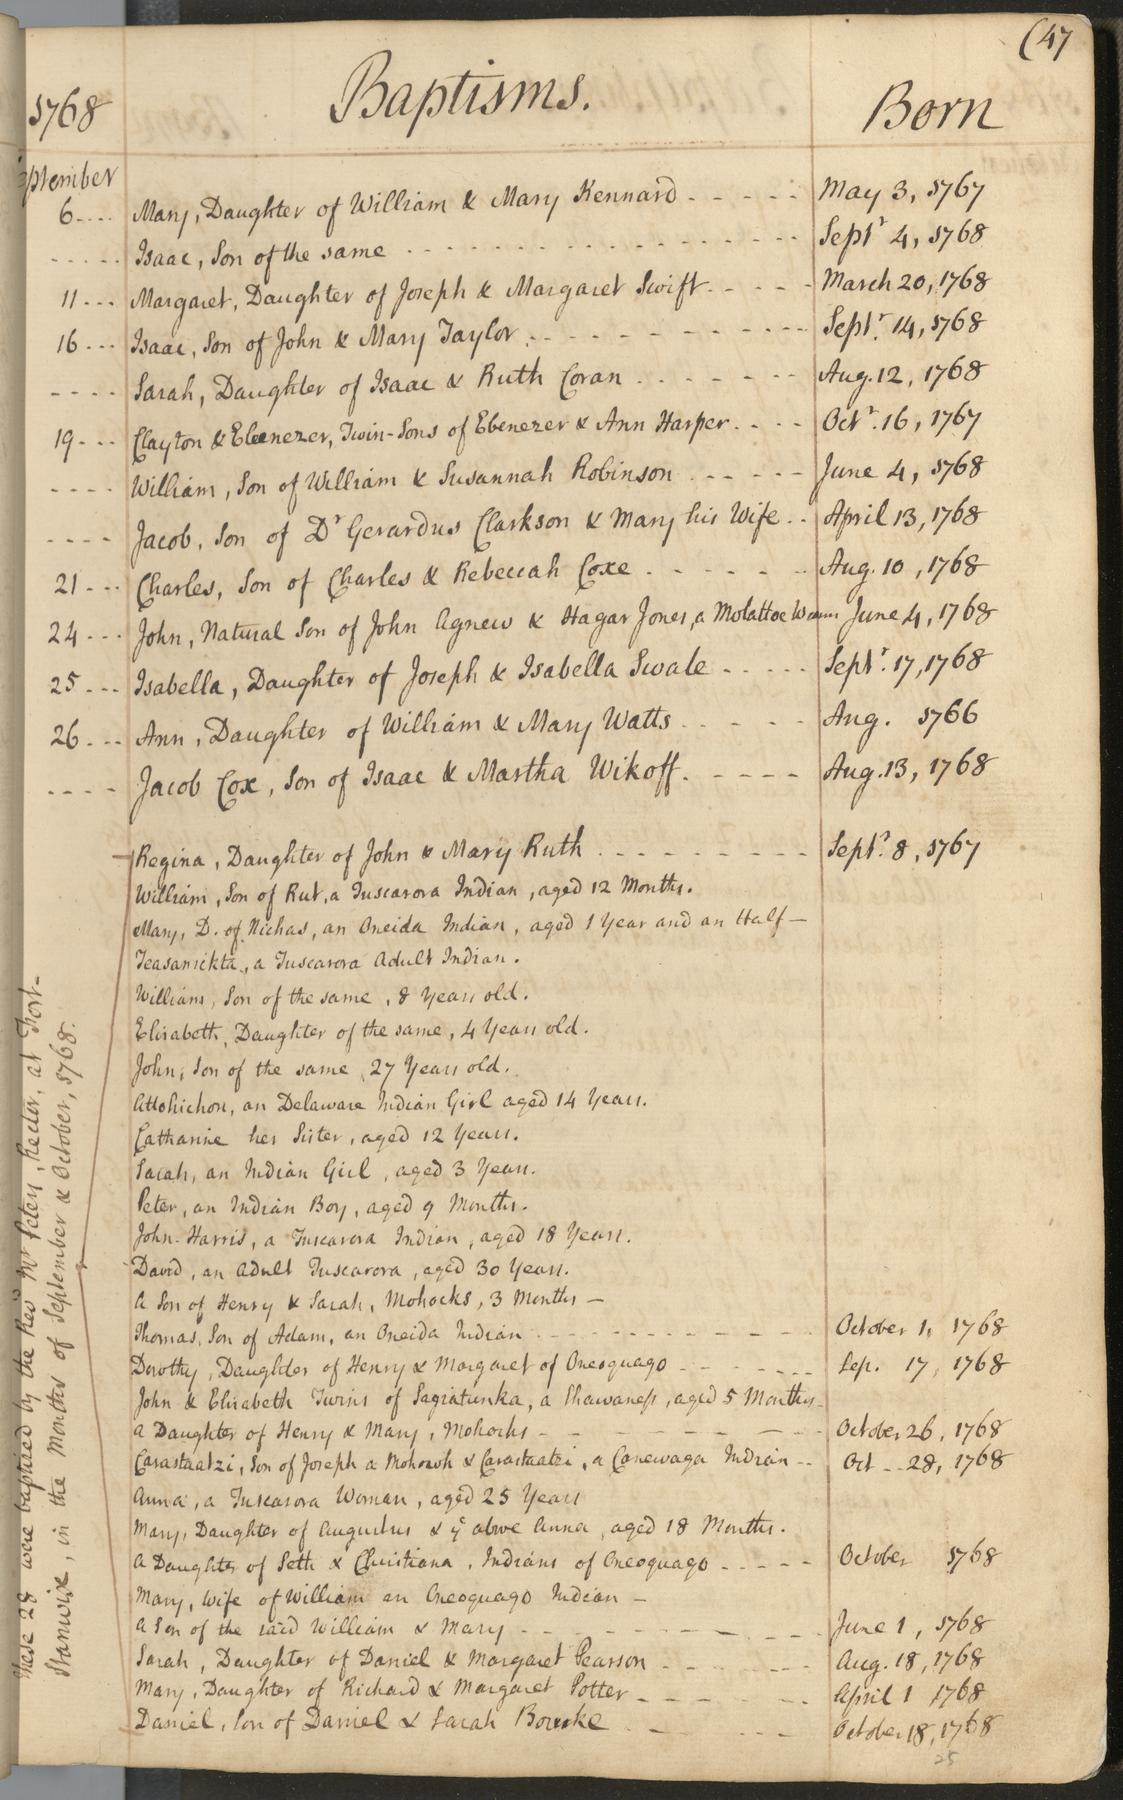 (47
1768 Baptisms. Born
September
6.... Mary, Daughter of William & Mary Kennard - - - - - May 3, 1767
- - - - - Isaac, Son of the same - - - - - - - - - - - - - - - - Septr 4, 1768
11 - - - Margaret, Daughter of Joseph & Margaret Swift - - - - - March 20, 1768
16 - - - Isaac, Son of John & Mary Taylor - - - - - - - - - - Septr. 14, 1768
- - - - Sarah, Daughter of Isaac & Ruth Coran - - - - - - - Aug. 12, 1768
19 - - - Clayton & Ebenezer, Twin-Sons of Ebenezer & Ann Harper - - - - Octr. 16, 1767
- - - - William, Son of William & Susannah Robinson - - - - - June 4, 1768
- - - - Jacob, Son of Dr Gerardus Clarkson & Mary his Wife - - April 13, 1768
21 - - - Charles, Son of Charles & Rebeccah Coxe - - - - - - Aug. 10, 1768
24 - - - John, Natural Son of John Agnew & Hagar Jones, a Molattoe Woman June 4, 1768
25 - - - Isabella, Daughter of Joseph & Isabella Swale - - - - - Septr. 17, 1768
26 - - - Ann, Daughter of William & Mary Watts - - - - - Aug. 1766
- - - - Jacob Cox, Son of Isaac & Martha Wikoff. - - - - Aug. 13, 1768
Regina, Daughter of John & Mary Ruth - - - - - - - - - Septr. 8, 1767
William, Son of Rut, a Tuscarora Indian, aged 12 Months.
Mary, D. of Nichas, an Oneida Indian, aged 1 Year and an Half -
Teasansikta, a Tuscarora Adult Indian.
William, Son of the same, 8 Years old.
Elisabeth, Daughter of the same, 4 Years old.
John, Son of the same, 27 Years old.
Attohichon, an Delaware Indian Girl aged 14 Years.
Catharine her Sister, aged 12 Years.
Sarah, an Indian Girl, aged 3 Years.
Peter, an Indian Boy, aged 9 Months.
John Harris, a Tuscarora Indian, aged 18 Years.
David, an Adult Tuscarora, aged 30 Years.
A Son of Henry & Sarah, Mohocks, 3 Months -
Thomas, Son of Adam, an Oneida Indian - - - - - - - - - October 1, 1768
Dorothy, Daughter of Henry & Margaret of Oneoquago - - - - - - Sep. 17, 1768
John & Elisabeth Twins of Sagiatunka, a Shawaness, aged 5 Months -
A Daughter of Henry & Mary, Mohocks - - - - - - - - October 26, 1768
Carastaatzi, Son of Joseph a Mohowk & Carastaatzi, a Canewaga Indian - - Oct - - 28, 1768
Anna, a Tuscarora Woman, aged 25 Years
Mary, Daughter of Augustus & ye above Anna, aged 18 Months.
A Daughter of Seth & Christiana, Indians of Oneoquago - - - - - October 1768
Mary, Wife of William an Oneoquago Indian -
A Son of the said William & Mary - - - - - - - - - June 1, 1768
Sarah, Daughter of Daniel & Margaret Pearson - - - - - - Aug. 18, 1768
Mary, Daughter of Richard & Margaret Potter - - - - - - April 1 1768
Daniel, Son of Daniel & Sarah Bourke - - - - - October 18, 1768
25
These 28 were baptized by the Revd Mr Peters, Rector, at Fort-
Stanwix, in the Months of September & October, 1768.